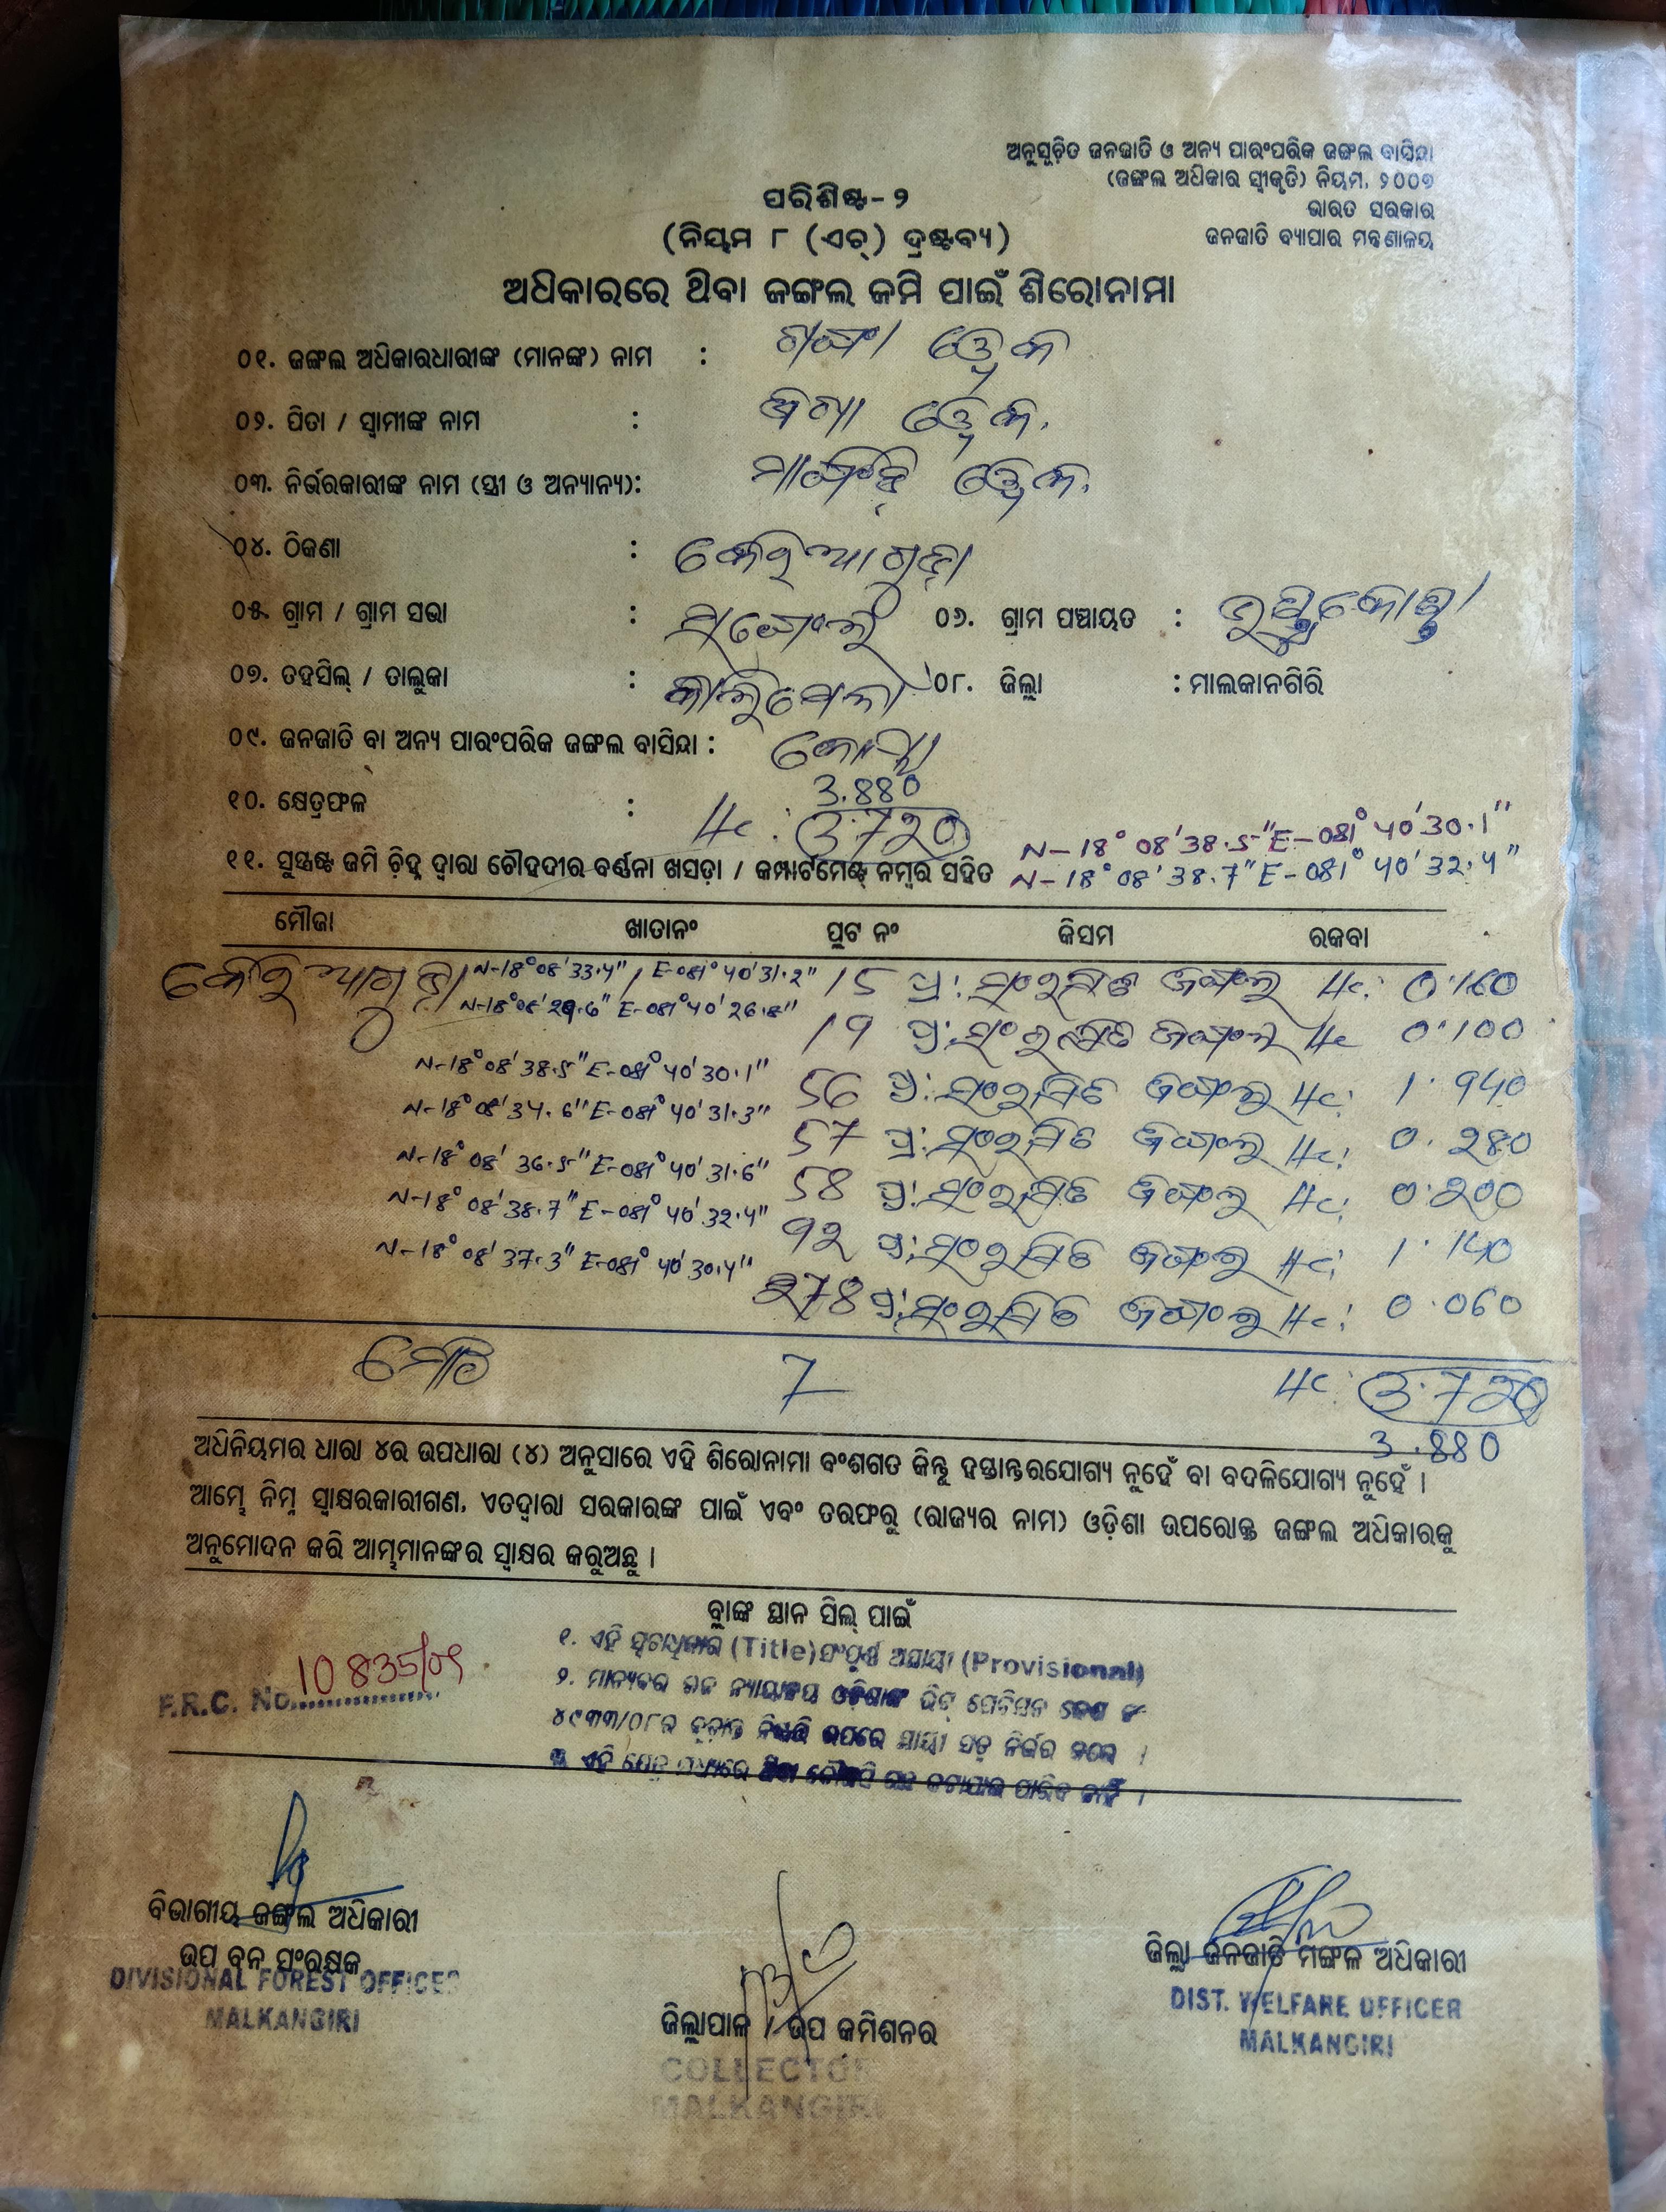 ଅନୁସୂଚିତ ଜନଜାତି ଓ ଅନ୍ୟ ପାରଂପରିକ ଜଙ୍ଗଲ ବାସିନ୍ଦା
(ଜଙ୍ଗଲ ଅଧିକାର ସ୍ୱୀକୃତି) ନିୟମ, ୨୦୦୭
ଭାରତ ସରକାର
ଜନଜାତି ବ୍ୟାପାର ମନ୍ତ୍ରଣାଳୟ
ପରିଶିଷ୍ଟ-୨
(ନିୟମ ୮ (ଏଚ୍) ଦ୍ରଷ୍ଟବ୍ୟ)
ଅଧିକାରରେ ଥିବା ଜଙ୍ଗଲ ଜମି ପାଇଁ ଶିରୋନାମା
୦୧. ଜଙ୍ଗଲ ଅଧିକାରଧାରୀଙ୍କ (ମାନଙ୍କ) ନାମ :
୦୨. ପିତା / ସ୍ୱାମୀଙ୍କ ନାମ :
୦୩. ନିର୍ଭରକାରୀଙ୍କ ନାମ (ସ୍ତ୍ରୀ ଓ ଅନ୍ୟାନ୍ୟ):
୦୪. ଠିକଣା : କେରିଆଗୁଡ଼ା
୦୫. ଗ୍ରାମ / ଗ୍ରାମ ସଭା : ୦୬. ଗ୍ରାମ ପଞ୍ଚାୟତ :
୦୭. ତହସିଲ୍ / ତାଲୁକା : କାଲିମେଳା ୦୮. ଜିଲ୍ଲା : ମାଲକାନଗିରି
୦୯. ଜନଜାତି ବା ଅନ୍ୟ ପାରଂପରିକ ଜଙ୍ଗଲ ବାସିନ୍ଦା : କୋୟା
3.880
୧୦. କ୍ଷେତ୍ରଫଳ : Hc: 3.720
N-18° 08' 38.5" E-081° 40' 30.1"
୧୧. ସୁସ୍ପଷ୍ଟ ଜମି ଚିହ୍ନ ଦ୍ୱାରା ଚୌହଦୀର ବର୍ଣ୍ଣନା ଖସଡ଼ା / କମ୍ପାର୍ଟମେଣ୍ଟ୍ ନମ୍ବର ସହିତ N-18° 08' 38.7" E-081° 40' 32.4"
ମୌଜା ଖାତାନଂ ପ୍ଲଟ ନଂ କିସମ ରକବା
କେରିଆଗୁଡ଼ା N-18° 08' 33.4" / E-081° 40' 31.2" 15 ପ୍ର: ସଂରକ୍ଷିତ ଜଙ୍ଗଲ Hc: 0.160
N-18° 08' 29.6" E-081° 40' 26.8" 19 ପ୍ର: ସଂରକ୍ଷିତ ଜଙ୍ଗଲ Hc 0.100
N-18° 08' 38.5" E-081° 40' 30.1" 56 ପ୍ର: ସଂରକ୍ଷିତ ଜଙ୍ଗଲ Hc: 1.940
N-18° 08' 34.6" E-081° 40' 31.3" 57 ପ୍ର: ସଂରକ୍ଷିତ ଜଙ୍ଗଲ Hc: 0.280
N-18° 08' 36.5" E-081° 40' 31.6" 58 ପ୍ର: ସଂରକ୍ଷିତ ଜଙ୍ଗଲ Hc: 0.200
N-18° 08' 38.7" E-081° 40' 32.4" 92 ପ୍ର: ସଂରକ୍ଷିତ ଜଙ୍ଗଲ Hc: 1.140
N-18° 08' 37.3" E-081° 40' 30.4" 278 ପ୍ର: ସଂରକ୍ଷିତ ଜଙ୍ଗଲ Hc: 0.060
ମୋଟ 7 Hc: 3.720
3.880
ଅଧିନିୟମର ଧାରା ୪ର ଉପଧାରା (୪) ଅନୁସାରେ ଏହି ଶିରୋନାମା ବଂଶଗତ କିନ୍ତୁ ହସ୍ତାନ୍ତରଯୋଗ୍ୟ ନୁହେଁ ବା ବଦଳିଯୋଗ୍ୟ ନୁହେଁ ।
ଆମ୍ଭେ ନିମ୍ନ ସ୍ୱାକ୍ଷରକାରୀଗଣ, ଏତଦ୍ୱାରା ସରକାରଙ୍କ ପାଇଁ ଏବଂ ତରଫରୁ (ରାଜ୍ୟର ନାମ) ଓଡ଼ିଶା ଉପରୋକ୍ତ ଜଙ୍ଗଲ ଅଧିକାରକୁ
ଅନୁମୋଦନ କରି ଆମ୍ଭମାନଙ୍କର ସ୍ୱାକ୍ଷର କରୁଅଛୁ ।
ବ୍ଲାଙ୍କ ସ୍ଥାନ ସିଲ୍ ପାଇଁ
୧. ଏହି ସ୍ୱତ୍ୱାଧିକାର (Title) ସଂପୂର୍ଣ୍ଣ ଅସ୍ଥାୟୀ (Provisional)
F.R.C. No. 10835/09
୨. ମାନ୍ୟବର ଉଚ୍ଚ ନ୍ୟାୟାଳୟ ଓଡ଼ିଶାଙ୍କ ରିଟ୍ ପେଟିସନ କେଶ ନଂ
୪୯୩୩/୦୮ର ଚୂଡ଼ାନ୍ତ ନିଷ୍ପତ୍ତି ଉପରେ ସ୍ଥାୟୀ ସତ୍ୱ ନିର୍ଭର କରେ ।
ବିଭାଗୀୟ ଜଙ୍ଗଲ ଅଧିକାରୀ
ଉପ ବନ ସଂରକ୍ଷକ
DIVISIONAL FOREST OFFICER
MALKANGIRI
ଜିଲ୍ଲାପାଳ / ଉପ କମିଶନର
COLLECTOR
MALKANGIRI
ଜିଲ୍ଲା ଜନଜାତି ମଙ୍ଗଳ ଅଧିକାରୀ
DIST. WELFARE OFFICER
MALKANGIRI